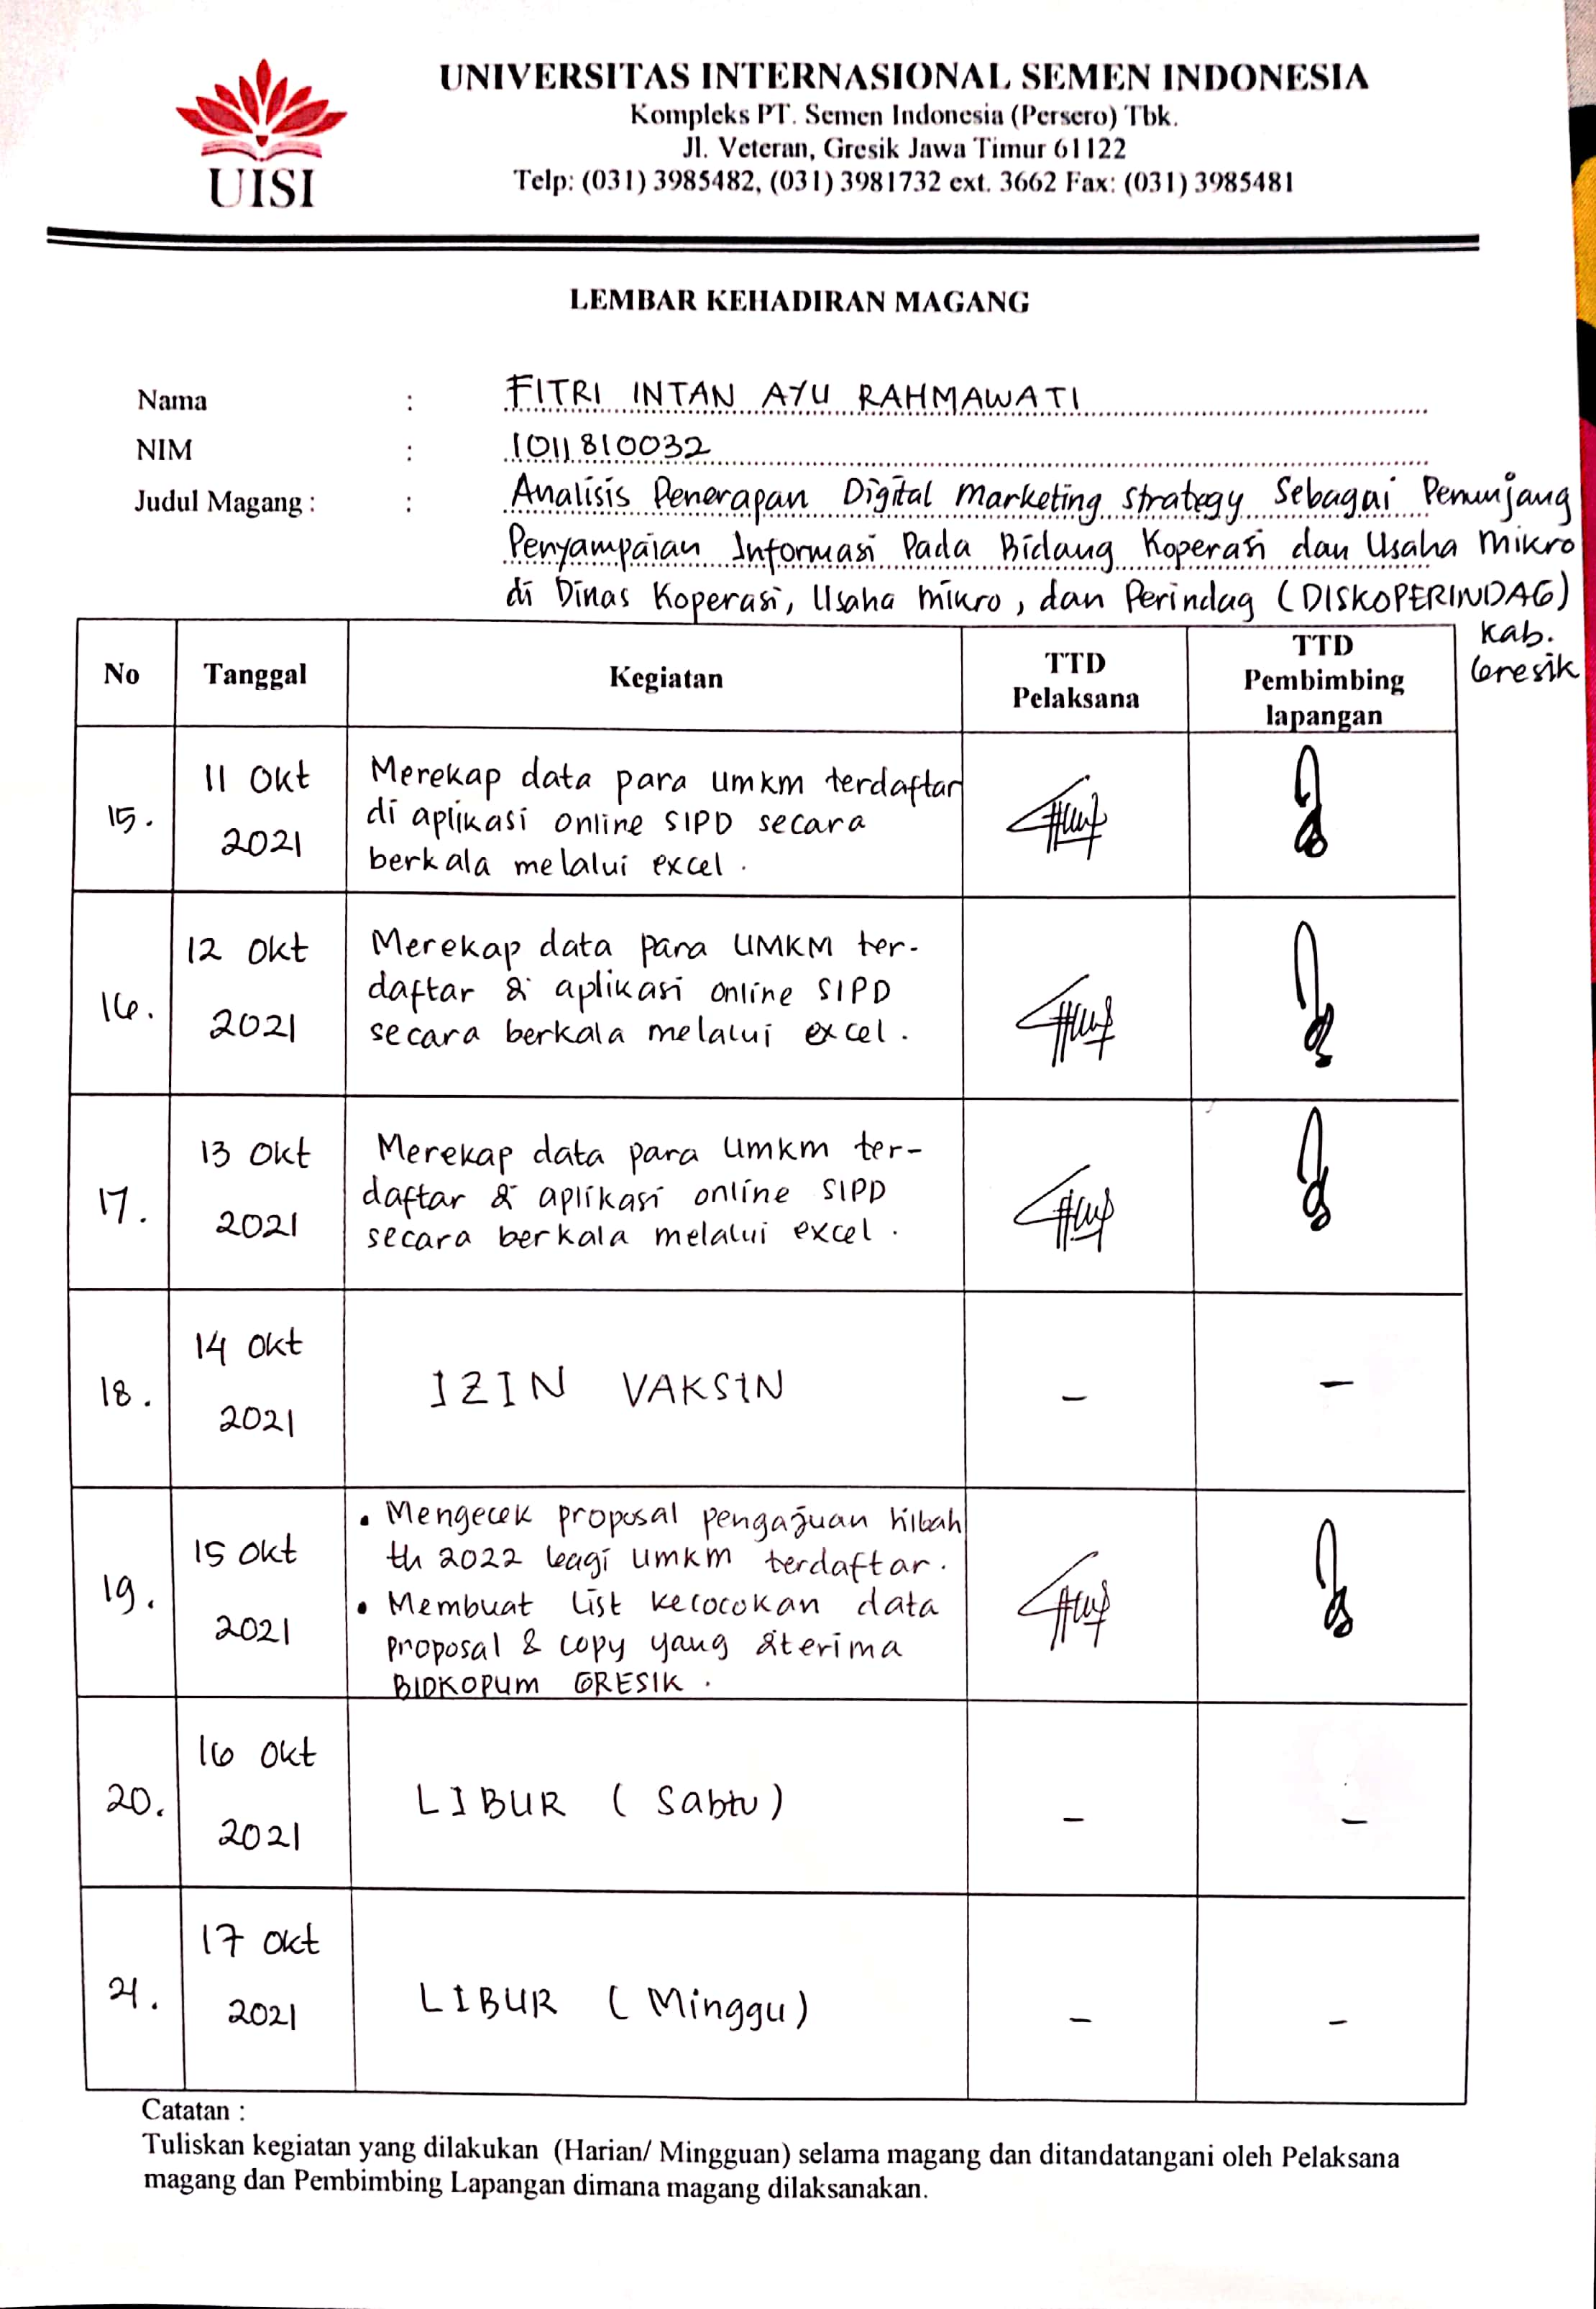 UNIVERSITAS INTERNASIONAL SEMEN INDONESIA
Kompleks PT. Semen Indonesia (Persero) Tbk.
Jl. Veteran, Gresik Jawa Timur 61122
Telp: (031) 3985482, (031) 3981732 ext. 3662 Fax: (031) 3985481
UISI
LEMBAR KEHADIRAN MAGANG
Nama : FITRI INTAN AYU RAHMAWATI
NIM : 1011810032
Judul Magang : : Analisis Penerapan Digital Marketing Strategy Sebagai Penunjang
Penyampaian Informasi Pada Bidang Koperasi dan Usaha Mikro
di Dinas Koperasi, Usaha Mikro, dan Perindag (DISKOPERINDAG)
Kab.
Gresik
No Tanggal Kegiatan TTD Pelaksana TTD Pembimbing lapangan
15. 11 Okt 2021
Merekap data para umkm terdaftar
di aplikasi online SIPD secara
berkala melalui excel.
16. 12 Okt 2021
Merekap data para UMKM ter-
daftar di aplikasi online SIPD
secara berkala melalui excel.
17. 13 Okt 2021
Merekap data para umkm ter-
daftar di aplikasi online SIPD
secara berkala melalui excel.
18. 14 Okt 2021
IZIN VAKSIN - -
19. 15 Okt 2021
• Mengecek proposal pengajuan hibah
th 2022 bagi umkm terdaftar.
• Membuat list kecocokan data
proposal & copy yang diterima
BIDKOPUM GRESIK.
20. 16 Okt 2021
LIBUR (Sabtu) - -
21. 17 Okt 2021
LIBUR (Minggu) - -
Catatan :
Tuliskan kegiatan yang dilakukan (Harian/ Mingguan) selama magang dan ditandatangani oleh Pelaksana
magang dan Pembimbing Lapangan dimana magang dilaksanakan.